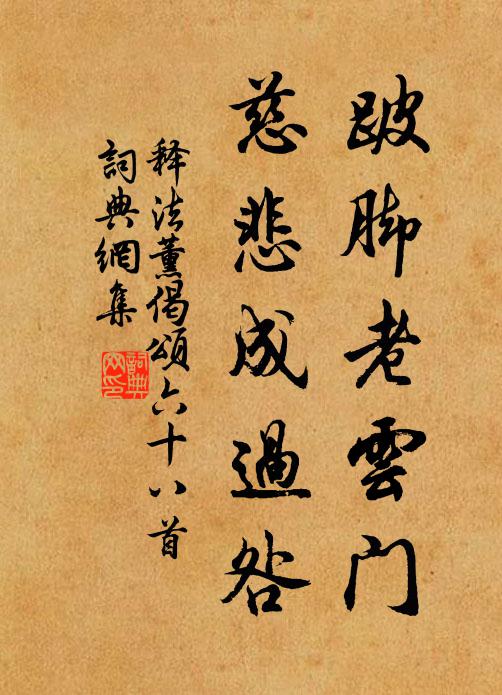 跛脚老雲门
慈悲成過咎
释法薰偈頌六十八首
詞典網集
詞典网印